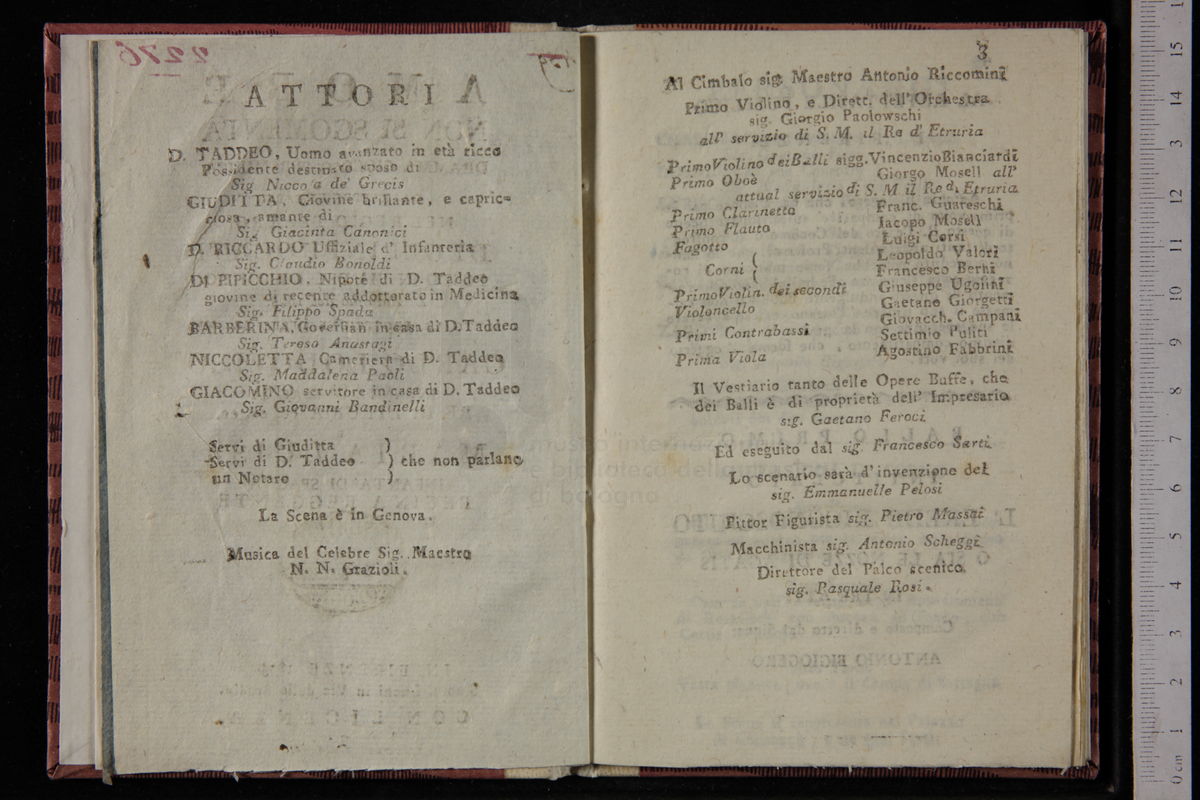 ATTORI
D. TADDEO, Uomo avanzato in età ricco
Possidente destinato sposo di
Sig Nicco'a de' Grecis
GIUDITTA, Giovine brillante, e capric-
ciosa, amante di
Sig Giacinta Canonici
D. RICCARDO Uffiziale d' Infanteria
Sig. Claudio Bonoldi
DI PIPICCHIO, Nipote di D. Taddeo
giovine di recente addottorato in Medicina
Sig. Filippo Spada
BARBERINA, Governan in casa di D. Taddeo
Sig. Teresa Anastagi
NICCOLETTA Cameriera di D. Taddeo
Sig. Maddalena Paoli
GIACOMINO servitore in casa di D. Taddeo
Sig. Giovanni Bandinelli
Servi di Giuditta )
Servi di D. Taddeo ) che non parlano
un Notaro )
La Scena è in Genova.
Musica del Celebre Sig. Maestro
N. N. Grazioli.
3
Al Cimbalo sig. Maestro Antonio Riccomini
Primo Violino, e Dirett. dell' Orchestra
sig. Giorgio Paolowschi
all' servizio di S. M. il Re d' Etruria
Primo Violino dei Balli sigg. Vincenzio Bianciardi
Primo Oboè Giorgo Mosell all'
attual servizio di S. M il Re d. Etruria
Primo Clarinetto Franc. Guareschi
Primo Flauto Iacopo Mosell
Fagotto Luigi Corsi
Corni { Leopoldo Valori
Francesco Berni
Primo Violin. dei secondi Giuseppe Ugolini
Violoncello Gaetano Giorgetti
Primi Contrabassi Giovacch. Campani
Settimio Puliti
Prima Viola Agostino Fabbrini
Il Vestiario tanto delle Opere Buffe, che
dei Balli è di proprietà dell' Impresario
sig. Gaetano Feroci
Ed eseguito dal sig. Francesco Sarti
Lo scenario sarà d' invenzione del
sig. Emmanuelle Pelosi
Pittor Figurista sig. Pietro Massai
Macchinista sig. Antonio Scheggi
Direttore del Palco scenico
sig. Pasquale Rosi.
museo internaz
e biblioteca della musica
di bologna
2276
0 cm 1 2 3 4 5 6 7 8 9 10 11 12 13 14 15